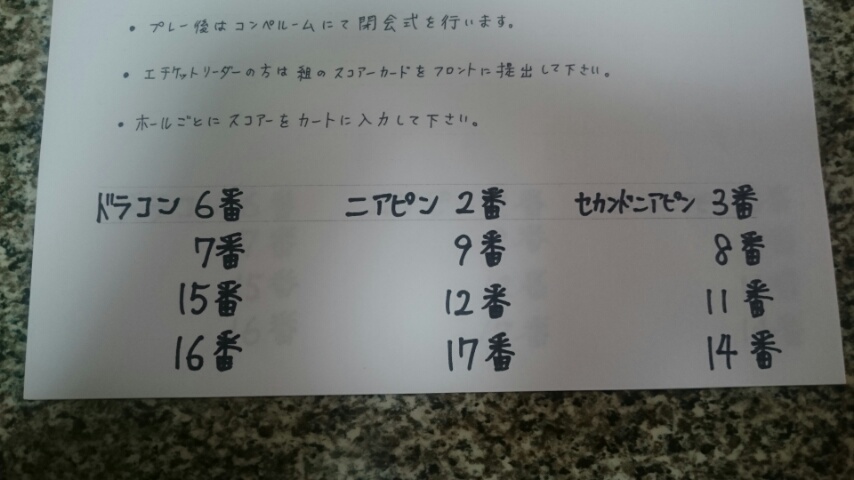 • プレー後はコンペルームにて閉会式を行います。
• エチケットリーダーの方は組のスコアーカードをフロントに提出して下さい。
• ホールごとにスコアーをカートに入力して下さい。
ドラコン 6番 ニアピン 2番 セカンドニアピン 3番
7番 9番 8番
15番 12番 11番
16番 17番 14番